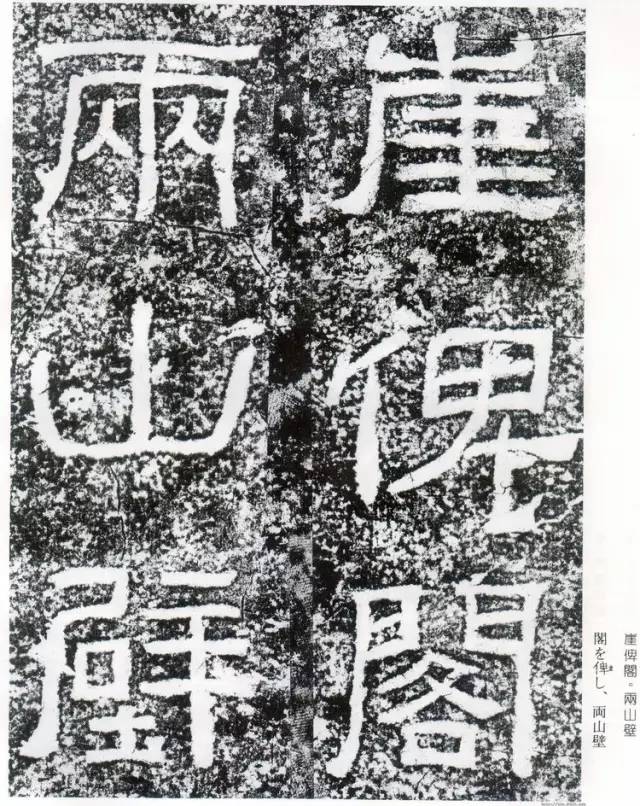 崖俾閣
兩山壁
崖俾閣。兩山壁
閣を俾し、両山壁